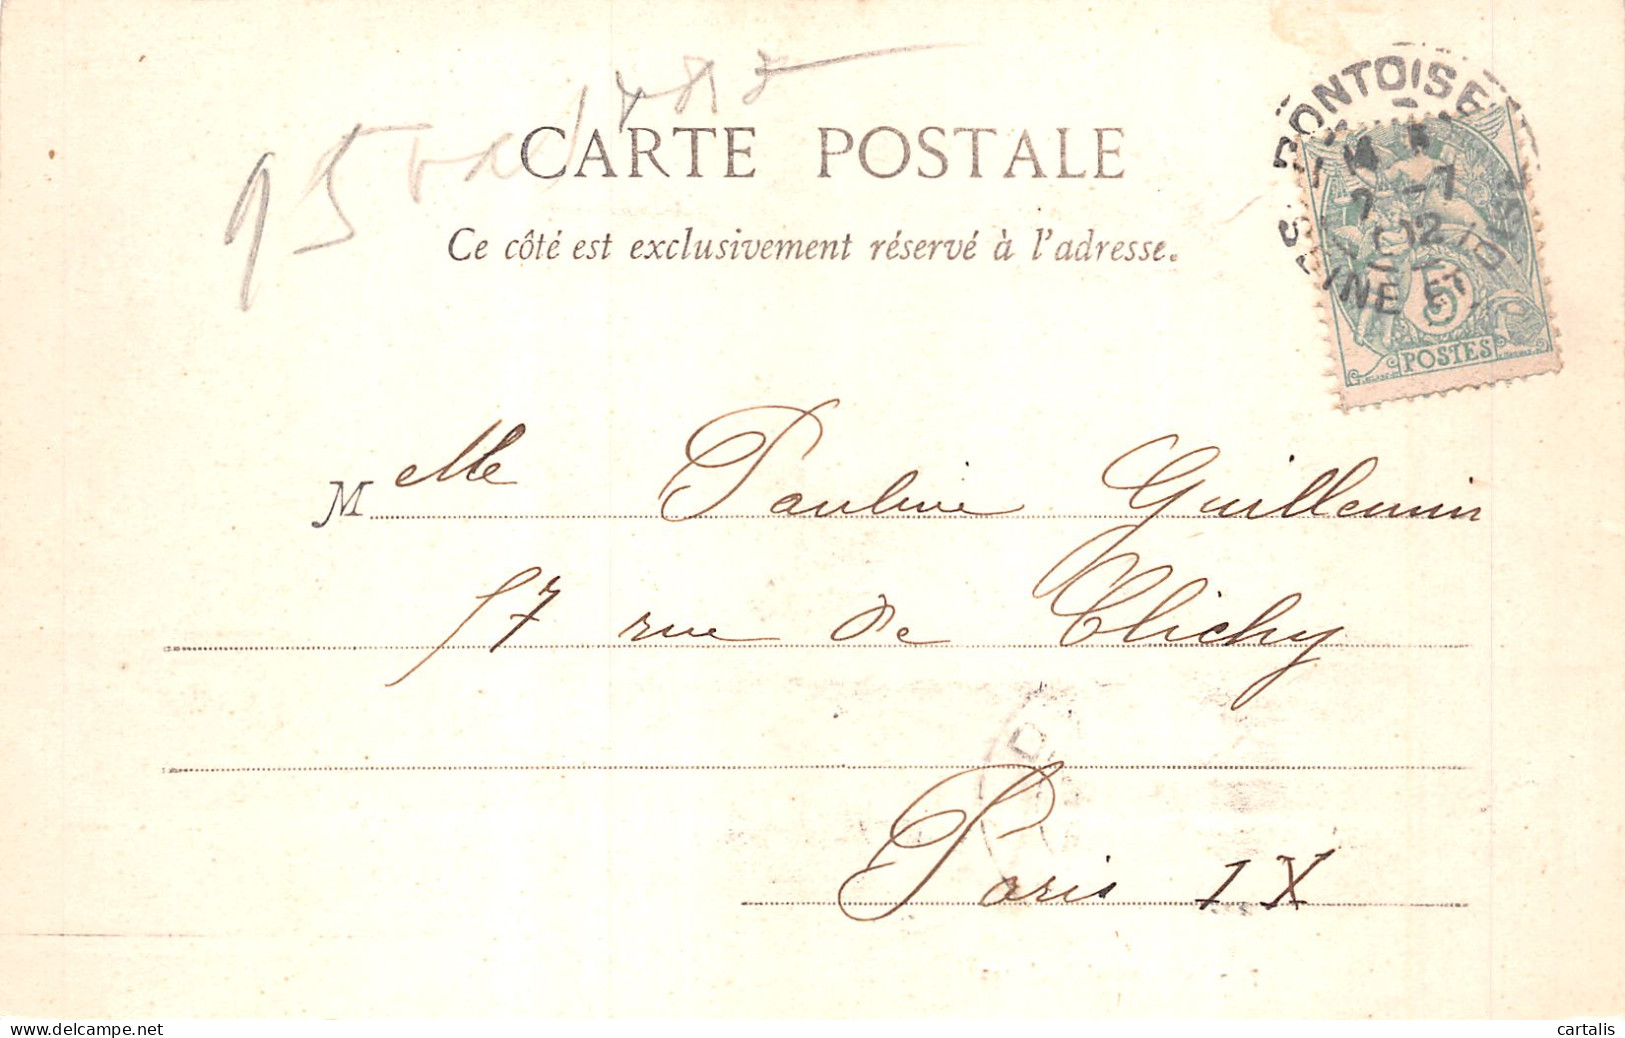 95
CARTE POSTALE
Ce côté est exclusivement réservé à l'adresse.
PONTOISE
7 -7
02
SEINE ET OISE
5
POSTES
Melle Pauline Guillemin
57 rue de Clichy
Paris IX
cartalis